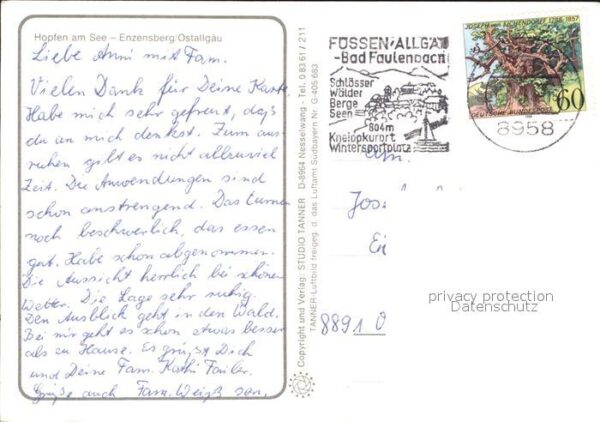 Hopfen am See – Enzensberg/Ostallgäu
Liebe Anni mit Fam.
Vielen Dank für Deine Karte
Habe mich sehr gefreut, daß
du an mich denkst. Zum aus
ruhen gibt es nicht allzuviel
Zeit. Die Anwendungen sind
schon anstrengend. Das turnen
noch beschwerlich, das essen
gut. Habe schon abgenommen.
Die Aussicht herrlich bei schönen
Wetter. Die Lage sehr ruhig.
Den Ausblick geht in den Wald.
Bei mir geht es schon etwas besser
als zu Hause. Es grüßt Dich
und Deine Fam. Kathi
Grüße auch Fam. Weiß
Copyright und Verlag: STUDIO TANNER D-8964 Nesselwang - Tel. 0 83 61 / 211
TANNER-Luftbild freigeg. d. das Luftamt Südbayern Nr. G-405/683
FÜSSEN/ALLGÄ
-Bad Faulenbach
Schlösser
Wälder
Berge
Seen
804m
Kneippkurort
Wintersportplatz
JOSEPH VON EICHENDORFF 1788-1857
DEUTSCHE BUNDESPOST
60
8958
Jos
Ei
8891 O
privacy protection
Datenschutz